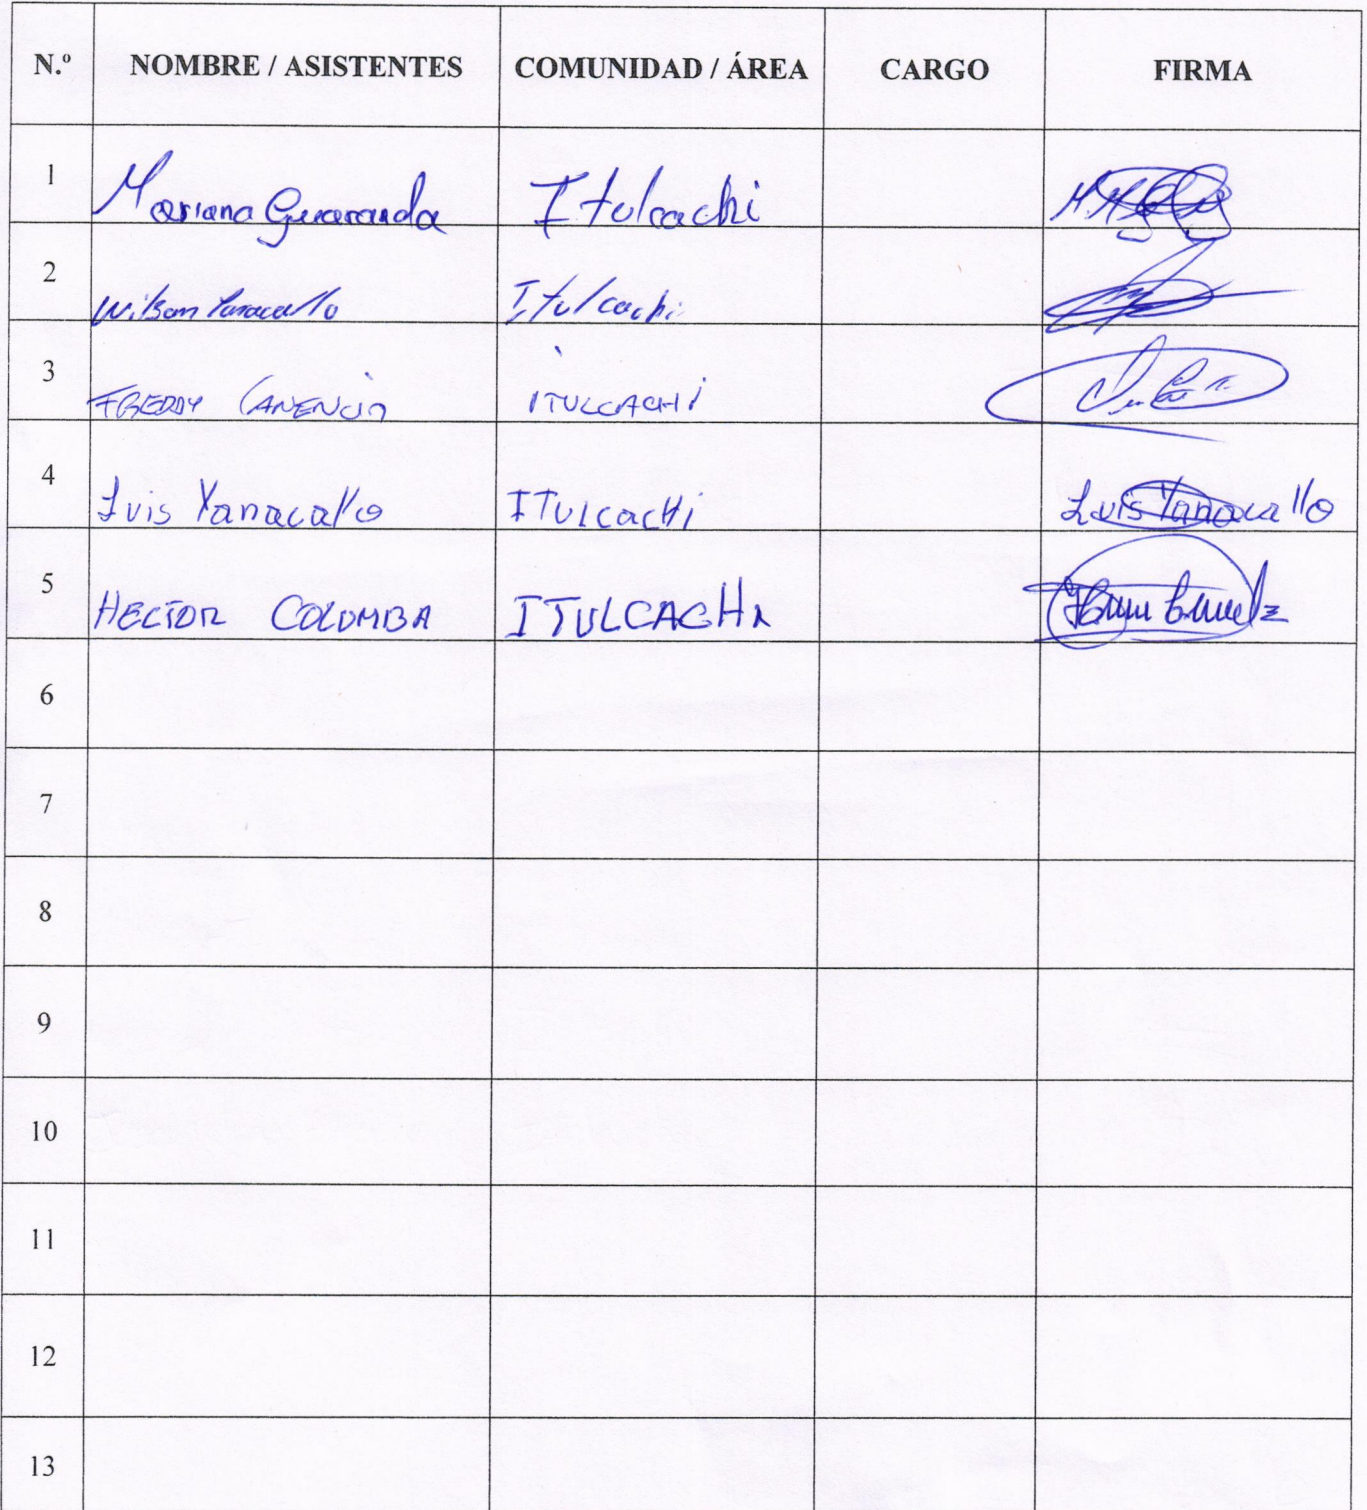 N.º NOMBRE / ASISTENTES COMUNIDAD / ÁREA CARGO FIRMA
1 Mariana Guaranda Itulcachi
2 Wilson Yanacallo Itulcachi
3 FREDDY CANENCIA ITULCACHI
4 Luis Yanacallo ITulcacHi Luis Yanacallo
5 HECTOR COLUMBA ITULCACHI
6
7
8
9
10
11
12
13